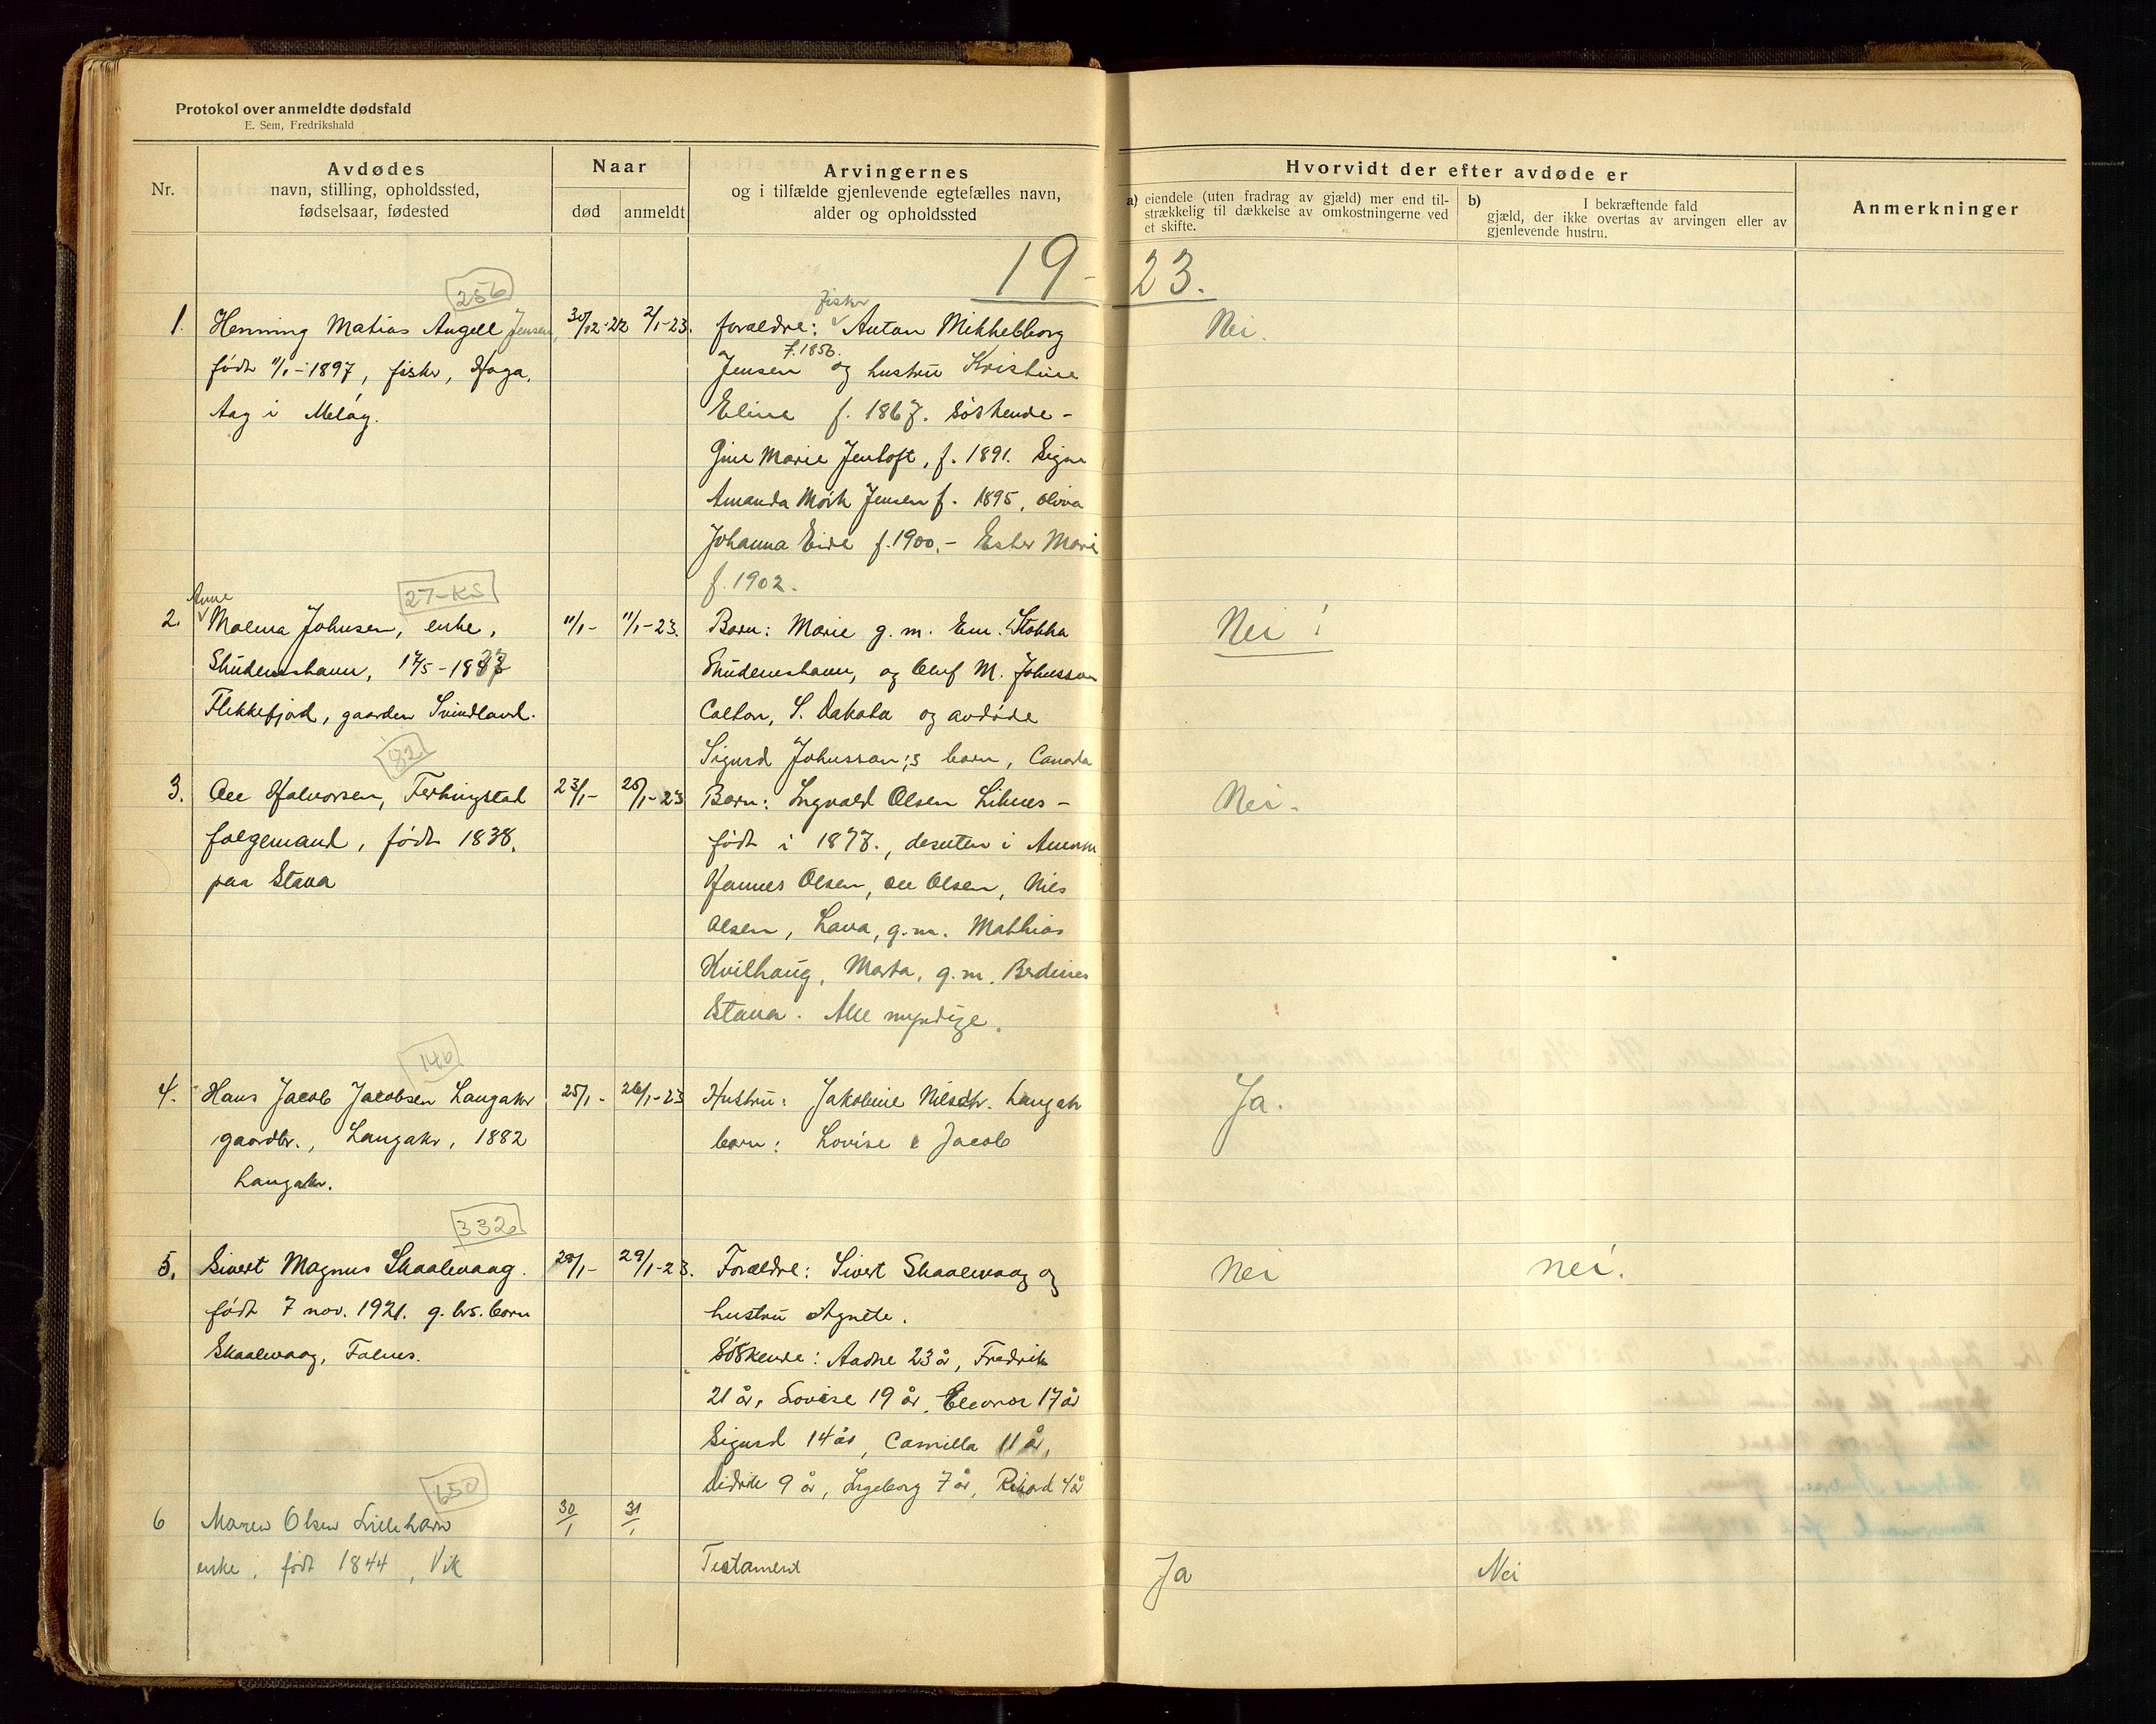 Protokol over anmeldte dødsfald
E. Sem, Fredrikshald
Nr.
Avdødes
navn, stilling, opholdssted,
fødselsaar, fødested
Naar
død
anmeldt
Arvingernes
og i tilfælde gjenlevende egtefælles navn,
alder og opholdssted
Hvorvidt der efter avdøde er
a) eiendele (uten fradrag av gjæld) mer end til-
strækkelig til dækkelse av omkostningerne ved
et skifte.
b) I bekræftende fald
gjæld, der ikke overtas av arvingen eller av
gjenlevende hustru.
Anmerkninger
19-23.
256
1. Henning Matias Angell Jensen, 30/12-22 2/1-23.
født 11/1-1897, fisker, Haga,
Aag i Meløy.
fisker
foraeldre: Anton Mikkelborg
f. 1856.
Jensen og hustru Kristine
Eline f. 1867. Søskende -
Gine Marie Jentoft, f. 1891. Signe
Amanda Mørk Jensen f. 1895, Oliva
Johanna Eide f. 1900. - Ester Marie
f. 1902.
Nei.
27-KS
Anne
2. Malena Johnsen, enke, 11/1- 11/1-23.
Skudeneshavn, 17/5-1837
Flekkefjord, gaarden Svindland.
Barn: Marie g. m. Em. Stokka
Skudeneshavn, og Oluf M. Johnsson
Colton, S. Dakota og avdøde
Sigurd Johnsson's barn, Canada
Nei!
82
3. Ole Halvorsen, Ferkingstad 23/1- 25/1-23
folgemand, født 1838,
paa Stava
Barn: Ingvald Olsen Liknes -
født i 1877., desuten i Amerika
Hannes Olsen, Ole Olsen, Nils
Olsen, Lava, g.m. Mathias
Kvilhaug, Marta, g.m. Berdines
Stava. Alle myndige.
Nei.
140
4. Hans Jacob Jacobsen Langaker 25/1- 26/1-23
gaardbr., Langaker, 1882
Langaker.
Hustru: Jakobine Nilsdtr. Langaker
barn: Lovise & Jacob
Ja.
332
5. Sivert Magnus Skaalevaag. 28/1- 29/1-23.
født 7 nov. 1921. g. brs. barn
Skaalevaag, Falnes.
Foraeldre: Sivert Skaalevaag og
hustru Agnete.
Søskende: Aadne 23 år, Fredrik
21 år, Lovise 19 år, Eleonor 17 år
Sigurd 14 år, Camilla 11 år,
Didrik 9 år, Ingeborg 7 år, Rikard 4 år
Nei
nei.
650
6 Maren Olsen Lillehavn 30/1 31/1
enke, født 1844, Vik
Testament
Ja
Nei